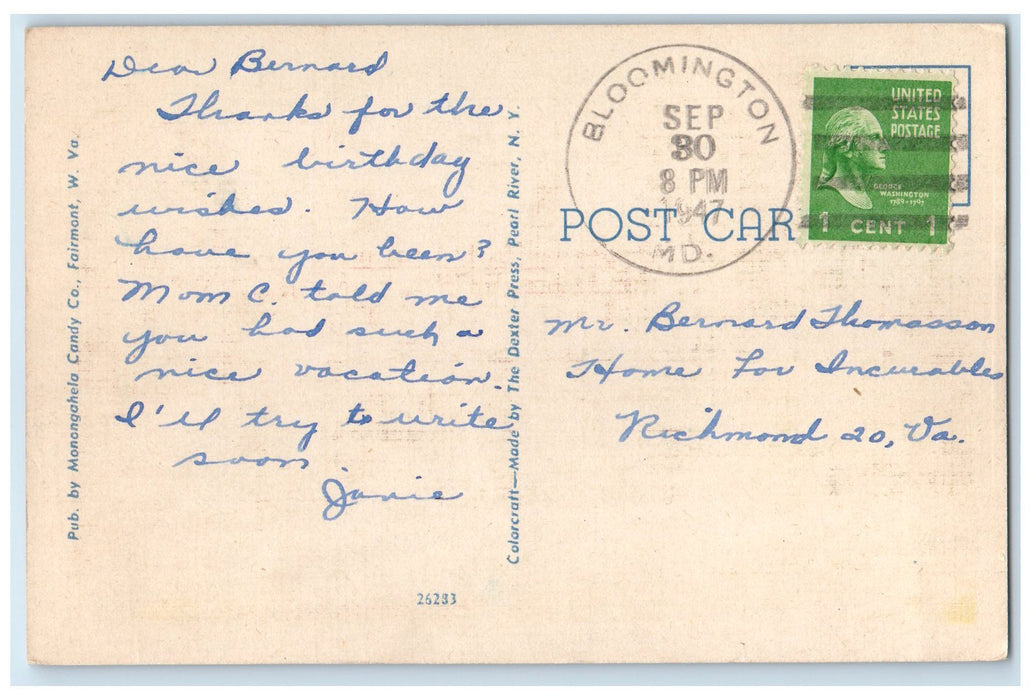 Dear Bernard
Thanks for the
nice birthday
wishes. How
have you been?
Mom C. told me
you had such a
nice vacation.
I'll try to write
soon
Janie
Pub. by Monongahela Candy Co., Fairmont, W. Va.
Colorcraft—Made by The Dexter Press, Pearl River, N. Y.
26283
BLOOMINGTON
SEP
30
8 PM
1947
MD.
POST CAR
UNITED
STATES
POSTAGE
GEORGE
WASHINGTON
1789-1797
1 CENT 1
Mr. Bernard Thomasson
Home For Incurables
Richmond 20, Va.